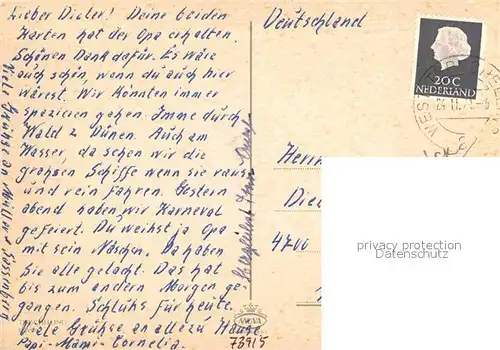 Lieber Dieter! Deine beiden
Karten hat der Opa erhalten.
Schönen Dank dafür. Es wäre
auch schön, wenn du auch hier
wärest. Wir könnten immer
spazieren gehen. Imme durch
Wald z Dünen. Auch am
Wasser, da sehen wir die
grohsen Schiffe wenn sie raus
und rein fahren. Gestern
abend haben wir Karneval
gefeiert. Du weihst ja Opa
mit sein Näschen. Da haben
Sie alle gelacht. Das hat
bis zum andern Morgen ge-
gangen. Schluhs für heute.
Viele Grühse an all zu Hause
Papi-Mami-Cornelia.
Viele Grühse an
Deutschland
20 C
NEDERLAND
Herrn
Die
4700
privacy protection
Datenschutz
73915